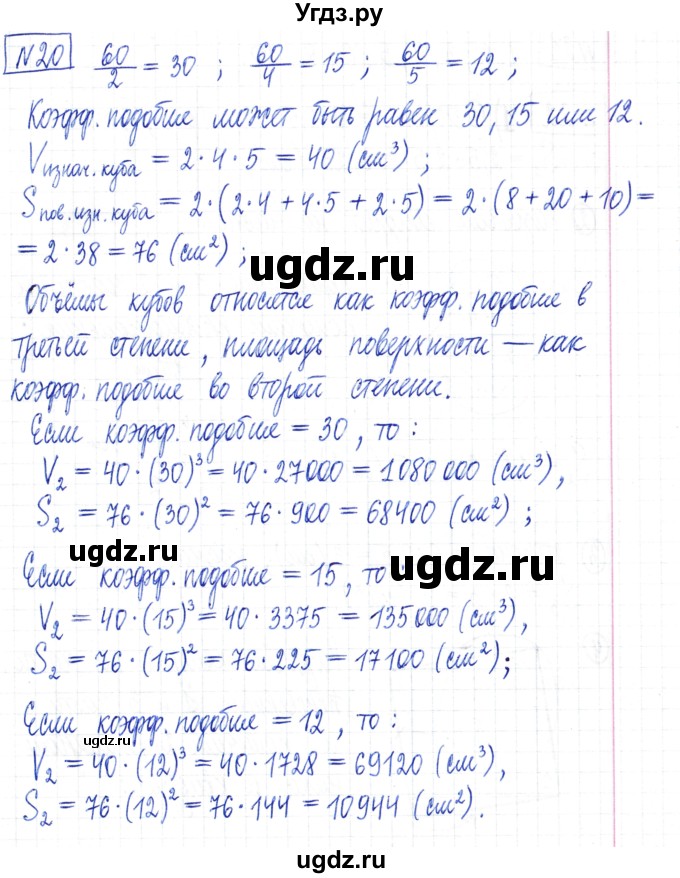 Угдз.ру
№20 60/2 = 30 ; 60/4 = 15 ; 60/5 = 12 ;
Коэфф. подобие может быть равен 30, 15 или 12.
Vизнач. куба = 2·4·5 = 40 (см³) ;
Sпов. изн. куба = 2·(2·4 + 4·5 + 2·5) = 2·(8 + 20 + 10) =
= 2·38 = 76 (см²) ;
ugdz.ru
Объёмы кубов относятся как коэфф. подобие в
третьей степени, площадь поверхности — как
коэфф. подобие во второй степени.
Если коэфф. подобие = 30, то :
V₂ = 40·(30)³ = 40·27000 = 1080 000 (см³),
S₂ = 76·(30)² = 76·900 = 68400 (см²) ;
ugdz.ru
Если коэфф. подобие = 15, то :
ugdz.ru
V₂ = 40·(15)³ = 40·3375 = 135000 (см³),
S₂ = 76·(15)² = 76·225 = 17100 (см²);
Если коэфф. подобие = 12, то :
ugdz.ru
V₂ = 40·(12)³ = 40·1728 = 69120 (см³),
S₂ = 76·(12)² = 76·144 = 10944 (см²).
ugdz.ru